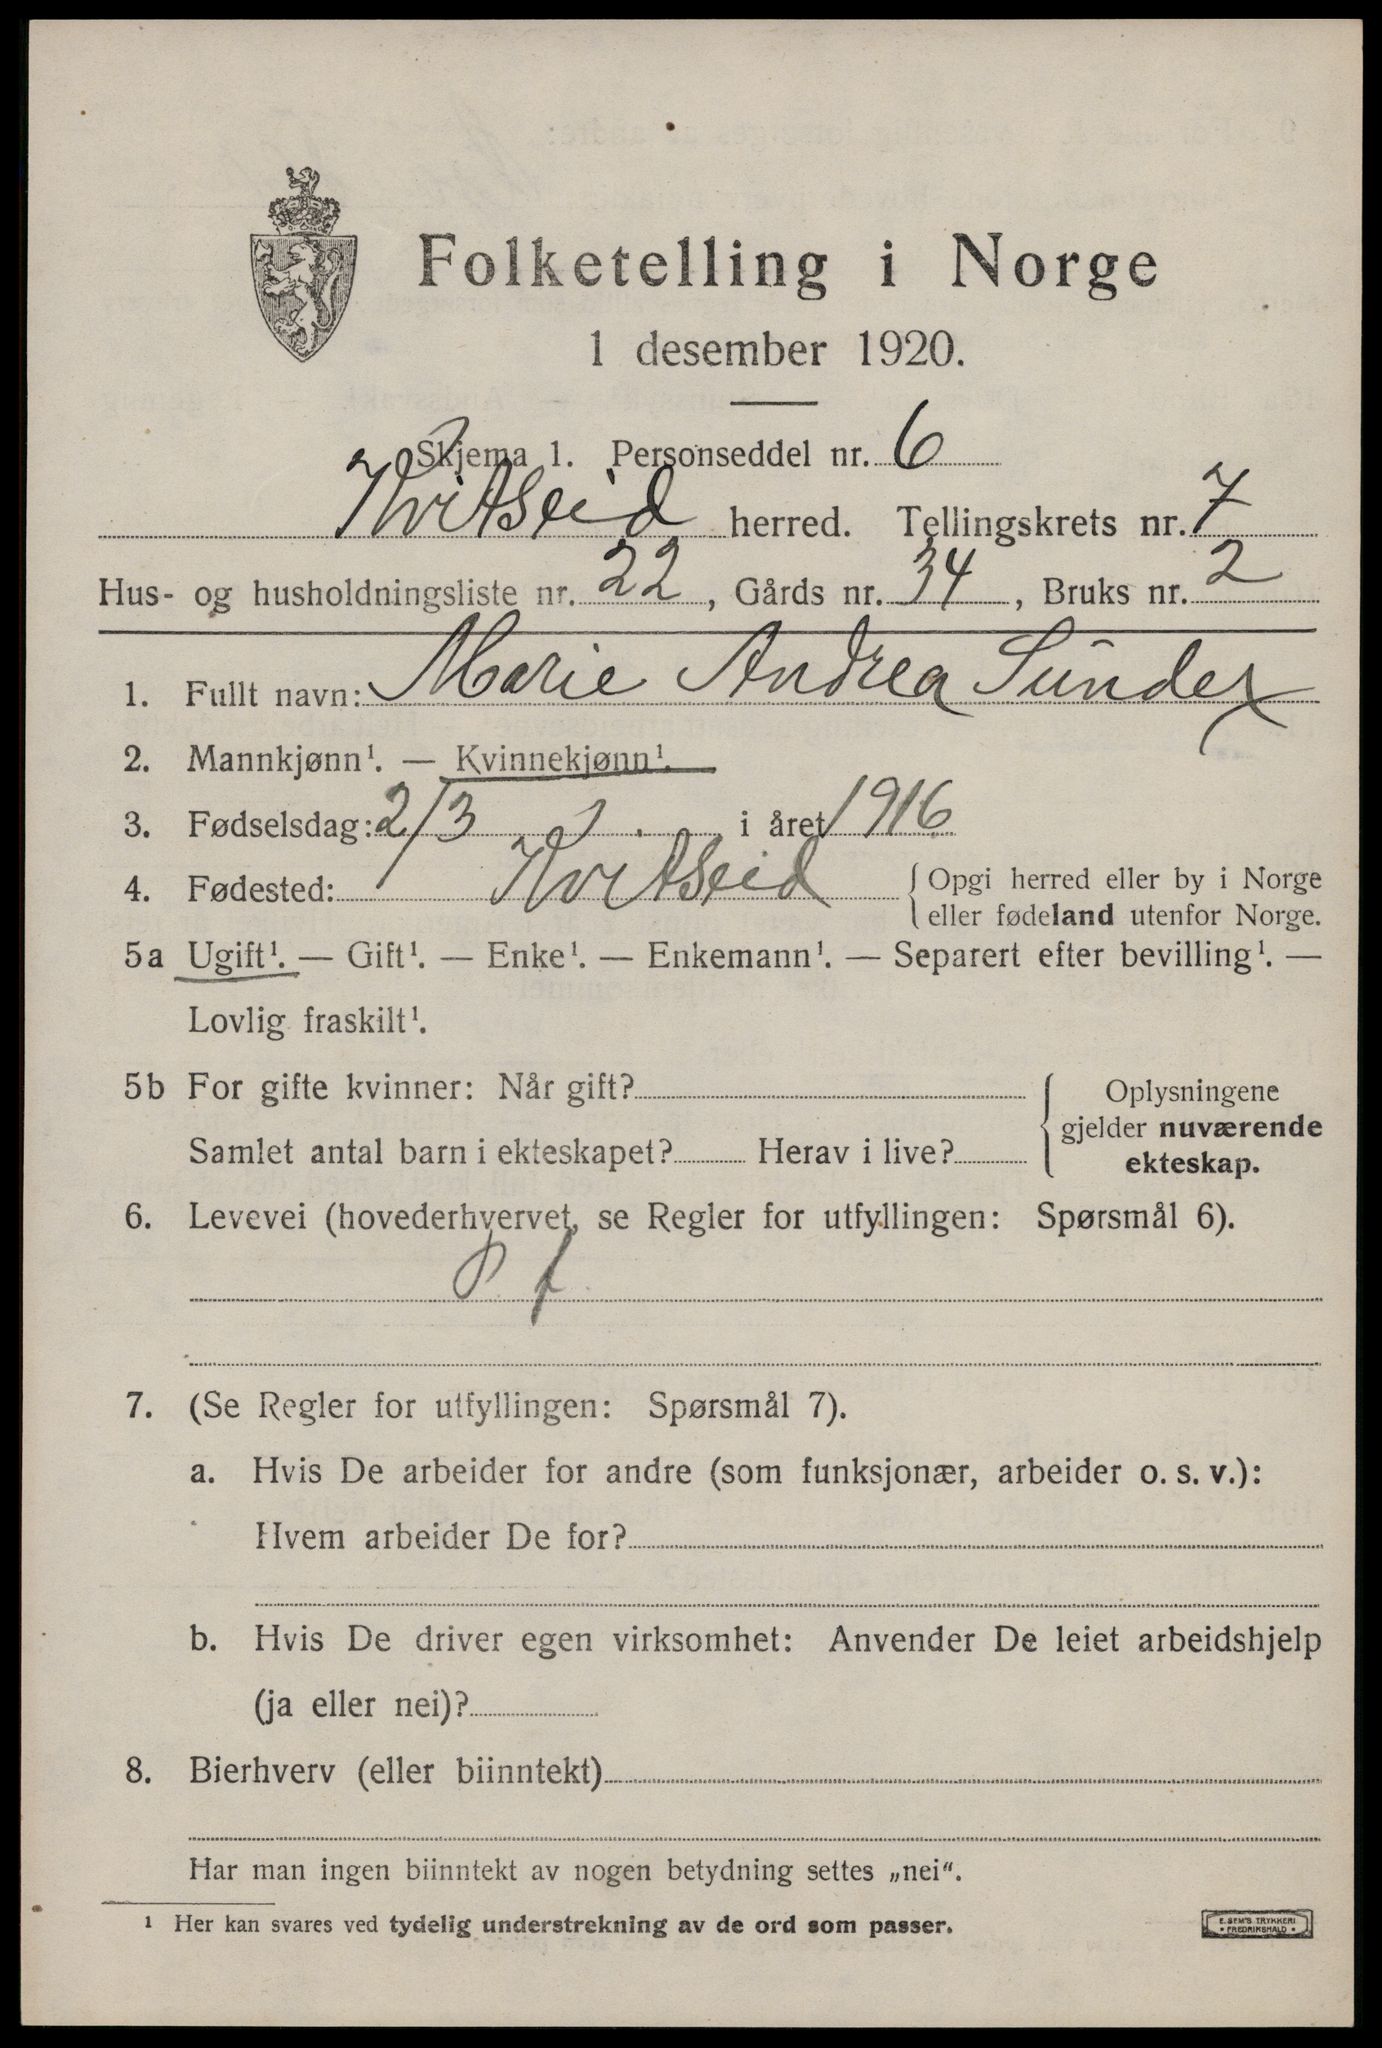 Folketelling i Norge
1 desember 1920.
Skjema 1. Personseddel nr. 6
Kvitseid herred. Tellingskrets nr. 7
Hus- og husholdningsliste nr. 22, Gårds nr. 34, Bruks nr. 2
1. Fullt navn: Marie Andrea
2. Mannkjønn¹. — Kvinnekjønn¹.
3. Fødselsdag: 2/3 i året 1916
4. Fødested: Kvitseid { Opgi herred eller by i Norge
eller fødeland utenfor Norge.
5a Ugift¹. — Gift¹. — Enke¹. — Enkemann¹. — Separert efter bevilling¹. —
Lovlig fraskilt¹.
5b For gifte kvinner: Når gift?
Samlet antal barn i ekteskapet? Herav i live?
Oplysningene
gjelder nuværende
ekteskap.
6. Levevei (hovederhvervet, se Regler for utfyllingen: Spørsmål 6).
7. (Se Regler for utfyllingen: Spørsmål 7).
a. Hvis De arbeider for andre (som funksjonær, arbeider o. s. v.):
Hvem arbeider De for?
b. Hvis De driver egen virksomhet: Anvender De leiet arbeidshjelp
(ja eller nei)?
8. Bierhverv (eller biinntekt)
Har man ingen biinntekt av nogen betydning settes „nei“.
¹ Her kan svares ved tydelig understrekning av de ord som passer.
E. SEM'S TRYKKERI
• FREDRIKSHALD •